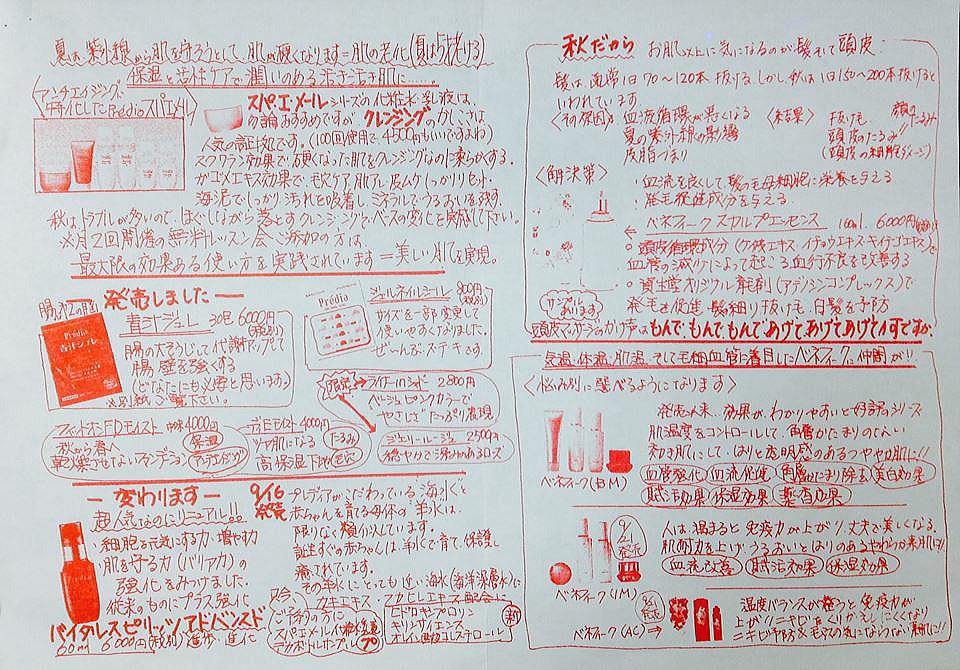 夏は、紫外線から肌を守ろうとして、肌が硬くなります＝肌の老化(夏は5才老ける)
保湿と活性ケアで潤いのある活き活き肌に……。
アンチエイジング
特化したPrédioスパエメル
スパ・エ・メールシリーズの化粧水・乳液は、
勿論おすすめですがクレンジングの
人気の証拠です。(100回使用で4500円もいいですよね)
スクワラン効果で、硬くなった肌をクレンジングなのに柔らかくする。
海泥でしっかり汚れを吸着し、ミネラルでうるおいを残す。
秋は、トラブルが多いので、ほぐしながら落とすクレンジングで、ベースの変化を実感して下さい。
※月2回開催の無料レッスン会ご参加の方は、
最大限の効果ある使い方を実践されています＝美しい肌を実現。
発売しました
青汁ジュレ 30包 6000円(税別)
腸の大そうじして代謝アップして
腸壁を強くする
(どなたにも必要と思います)
※別紙ご覧下さい。
Prédia
青汁ジュレ
ジェルネイルシール 800円(税別)
サイズを一部変更して
使いやすくなりました。
ぜ〜んぶステキです。
限定
ライナーinシャドー 2800円
ベージュピンクカラーで
やさしさたっぷり表現
ジェリールージュ 2500円
穏やかで深みのあるローズ
4000円
秋から春へ
乾燥させないファンデーション
保湿
アンチエイジング
モイスト 4000円
ツヤ肌になる
高保湿下地
たるみ
毛穴
ー変わりますー
超人気なのにリニューアル!!
・細胞を元気にする力、増やす力
・肌を守る力(バリア力)の
強化をみつけました。
従来のものにプラス強化
バイタルスピリッツアドバンスド
60ml 6000円(税別) 進歩・進化
9/16発売
プレディアがこだわっている“海水”と
赤ちゃんを育てる母体の“羊水”は、
限りなく類似しています。
誕生すぐの赤ちゃんは、羊水で育て、保護し
癒されています。
その羊水にとっても近い海水(海洋深層水)に
ご予約の方に
ヒドロキシプロリン
新
秋だから お肌以上に気になるのが髪そして頭皮
髪は、通常1日70〜120本抜ける。しかし秋は1日150〜200本抜けると
いわれています。
〈その原因〉
血液循環が悪くなる
夏の紫外線の影響
皮脂づまり
〈結果〉
抜け毛
頭皮のたるみ
(頭皮の細胞ダメージ)
顔のたるみ!!
〈解決策〉
・血流を良くして、髪の毛母細胞に栄養を与える
・発毛促進成分を与える
ベネフィークスカルプエッセンス 6000円(税別)
血管の減少によって起こる血行不良を改善する
○資生堂オリジナル育毛剤(アデノシンコンプレックス)で
発毛を促進、髪細り抜け毛、白髪を予防
サンプルあります。
頭皮マッサージのかけ声はもんで・もんで・もんで あげて あげて あげて 何ですか
気温・体温・肌温、そして毛細血管に着目したベネフィークに仲間が!!
〈悩み別に選べるようになります〉
発売以来、効果が、わかりやすいと好評のシリーズ
肌温度をコントロールして、角層がたまりのない
やわ肌にして、はりと透明感のあるつややか肌に!!
血管強化 血流促進 角層たまり除去 美白効果
賦活効果 保湿効果 薬育効果
9/21発売
人は、温まると免疫力が上がり、丈夫で美しくなる。
肌耐力を上げ、うるおいとはりのあるやわらか素肌に!!
血流改善 賦活効果 保湿効果
ベネフィーク(IM)
ベネフィーク(AC)
温度バランスが整うと免疫力が
上がりニキビをくりかえしにくくなり
ニキビ予防＆毛穴の気にならない素肌に!!